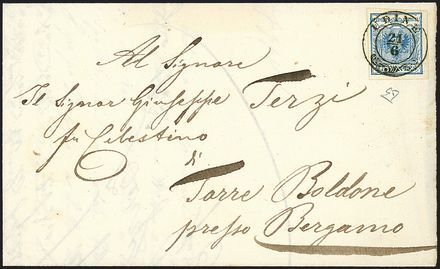 Al Signore
Il Signor Giuseppe Terzi
fu Celestino
di
Torre Boldone
presso Bergamo
21
6